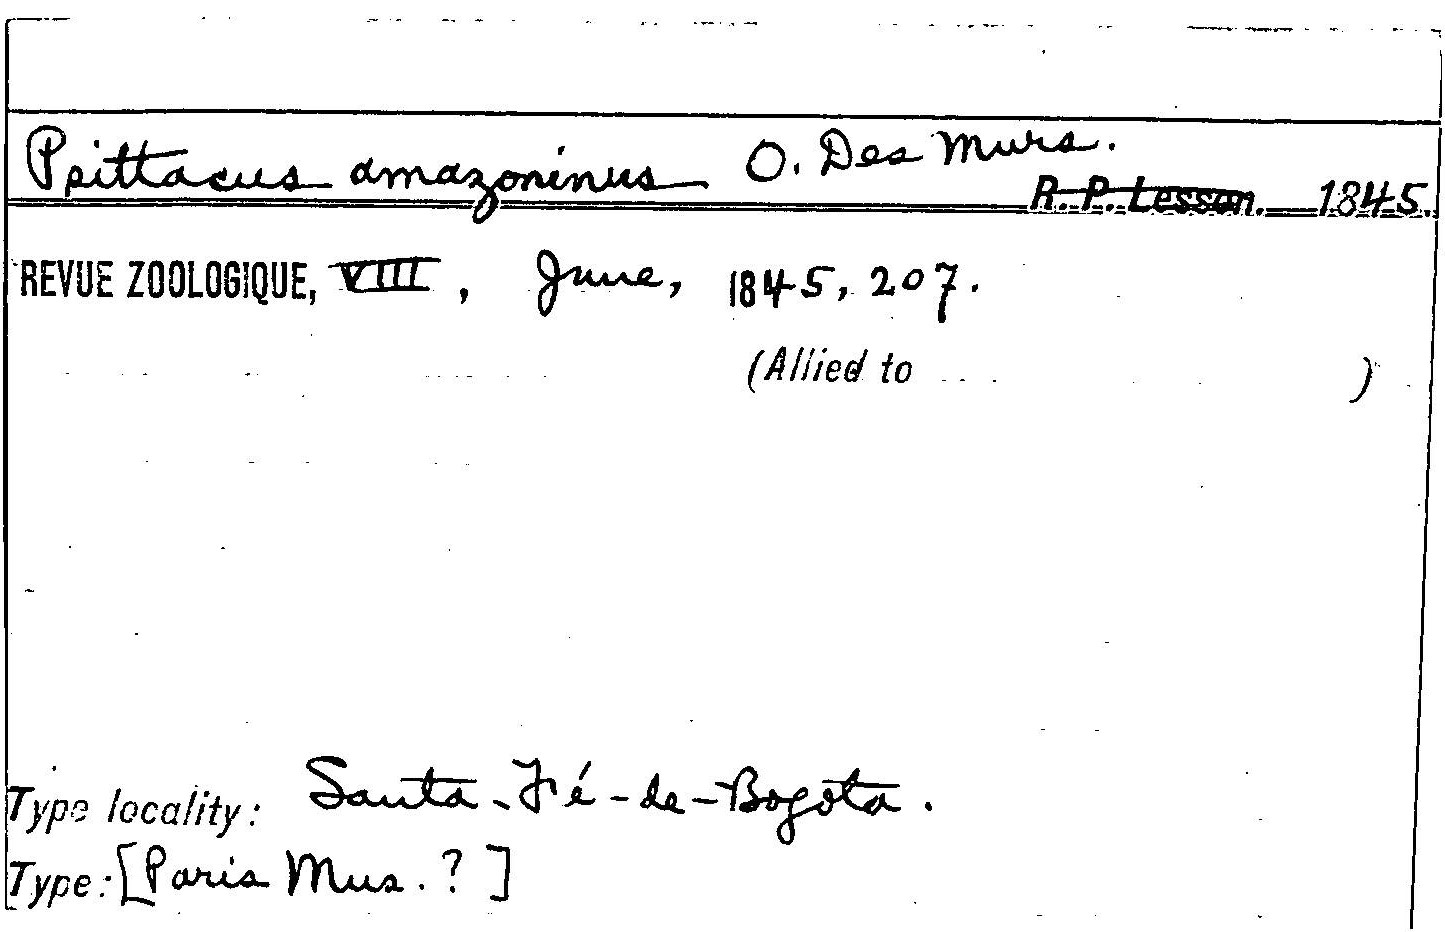 Psittacus amazoninus O. Des Murs.
R. P. Lesson. 1845.
REVUE ZOOLOGIQUE, VIII, June, 1845, 207.
(Allied to )
Type locality: Santa-Fé-de-Bogota.
Type: [Paris Mus. ? ]